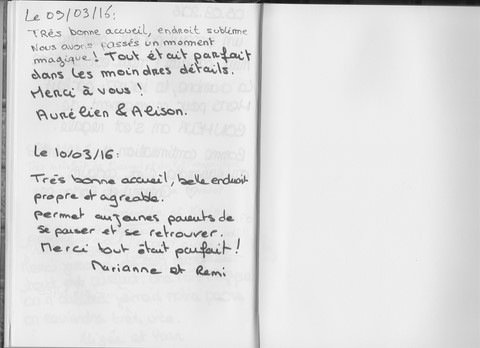 Le 09/03/16:
Très bonne accueil, endroit sublime
Nous avons passés un moment
magique! Tout était parfait
dans les moindres détails.
Merci à vous!
Aurélien & Alison.
Le 10/03/16:
Très bonne accueil, belle endroit
propre et agreable.
permet aux jeunes parents de
se pauser et se retrouver.
Merci tout était parfait!
Marianne et Remi